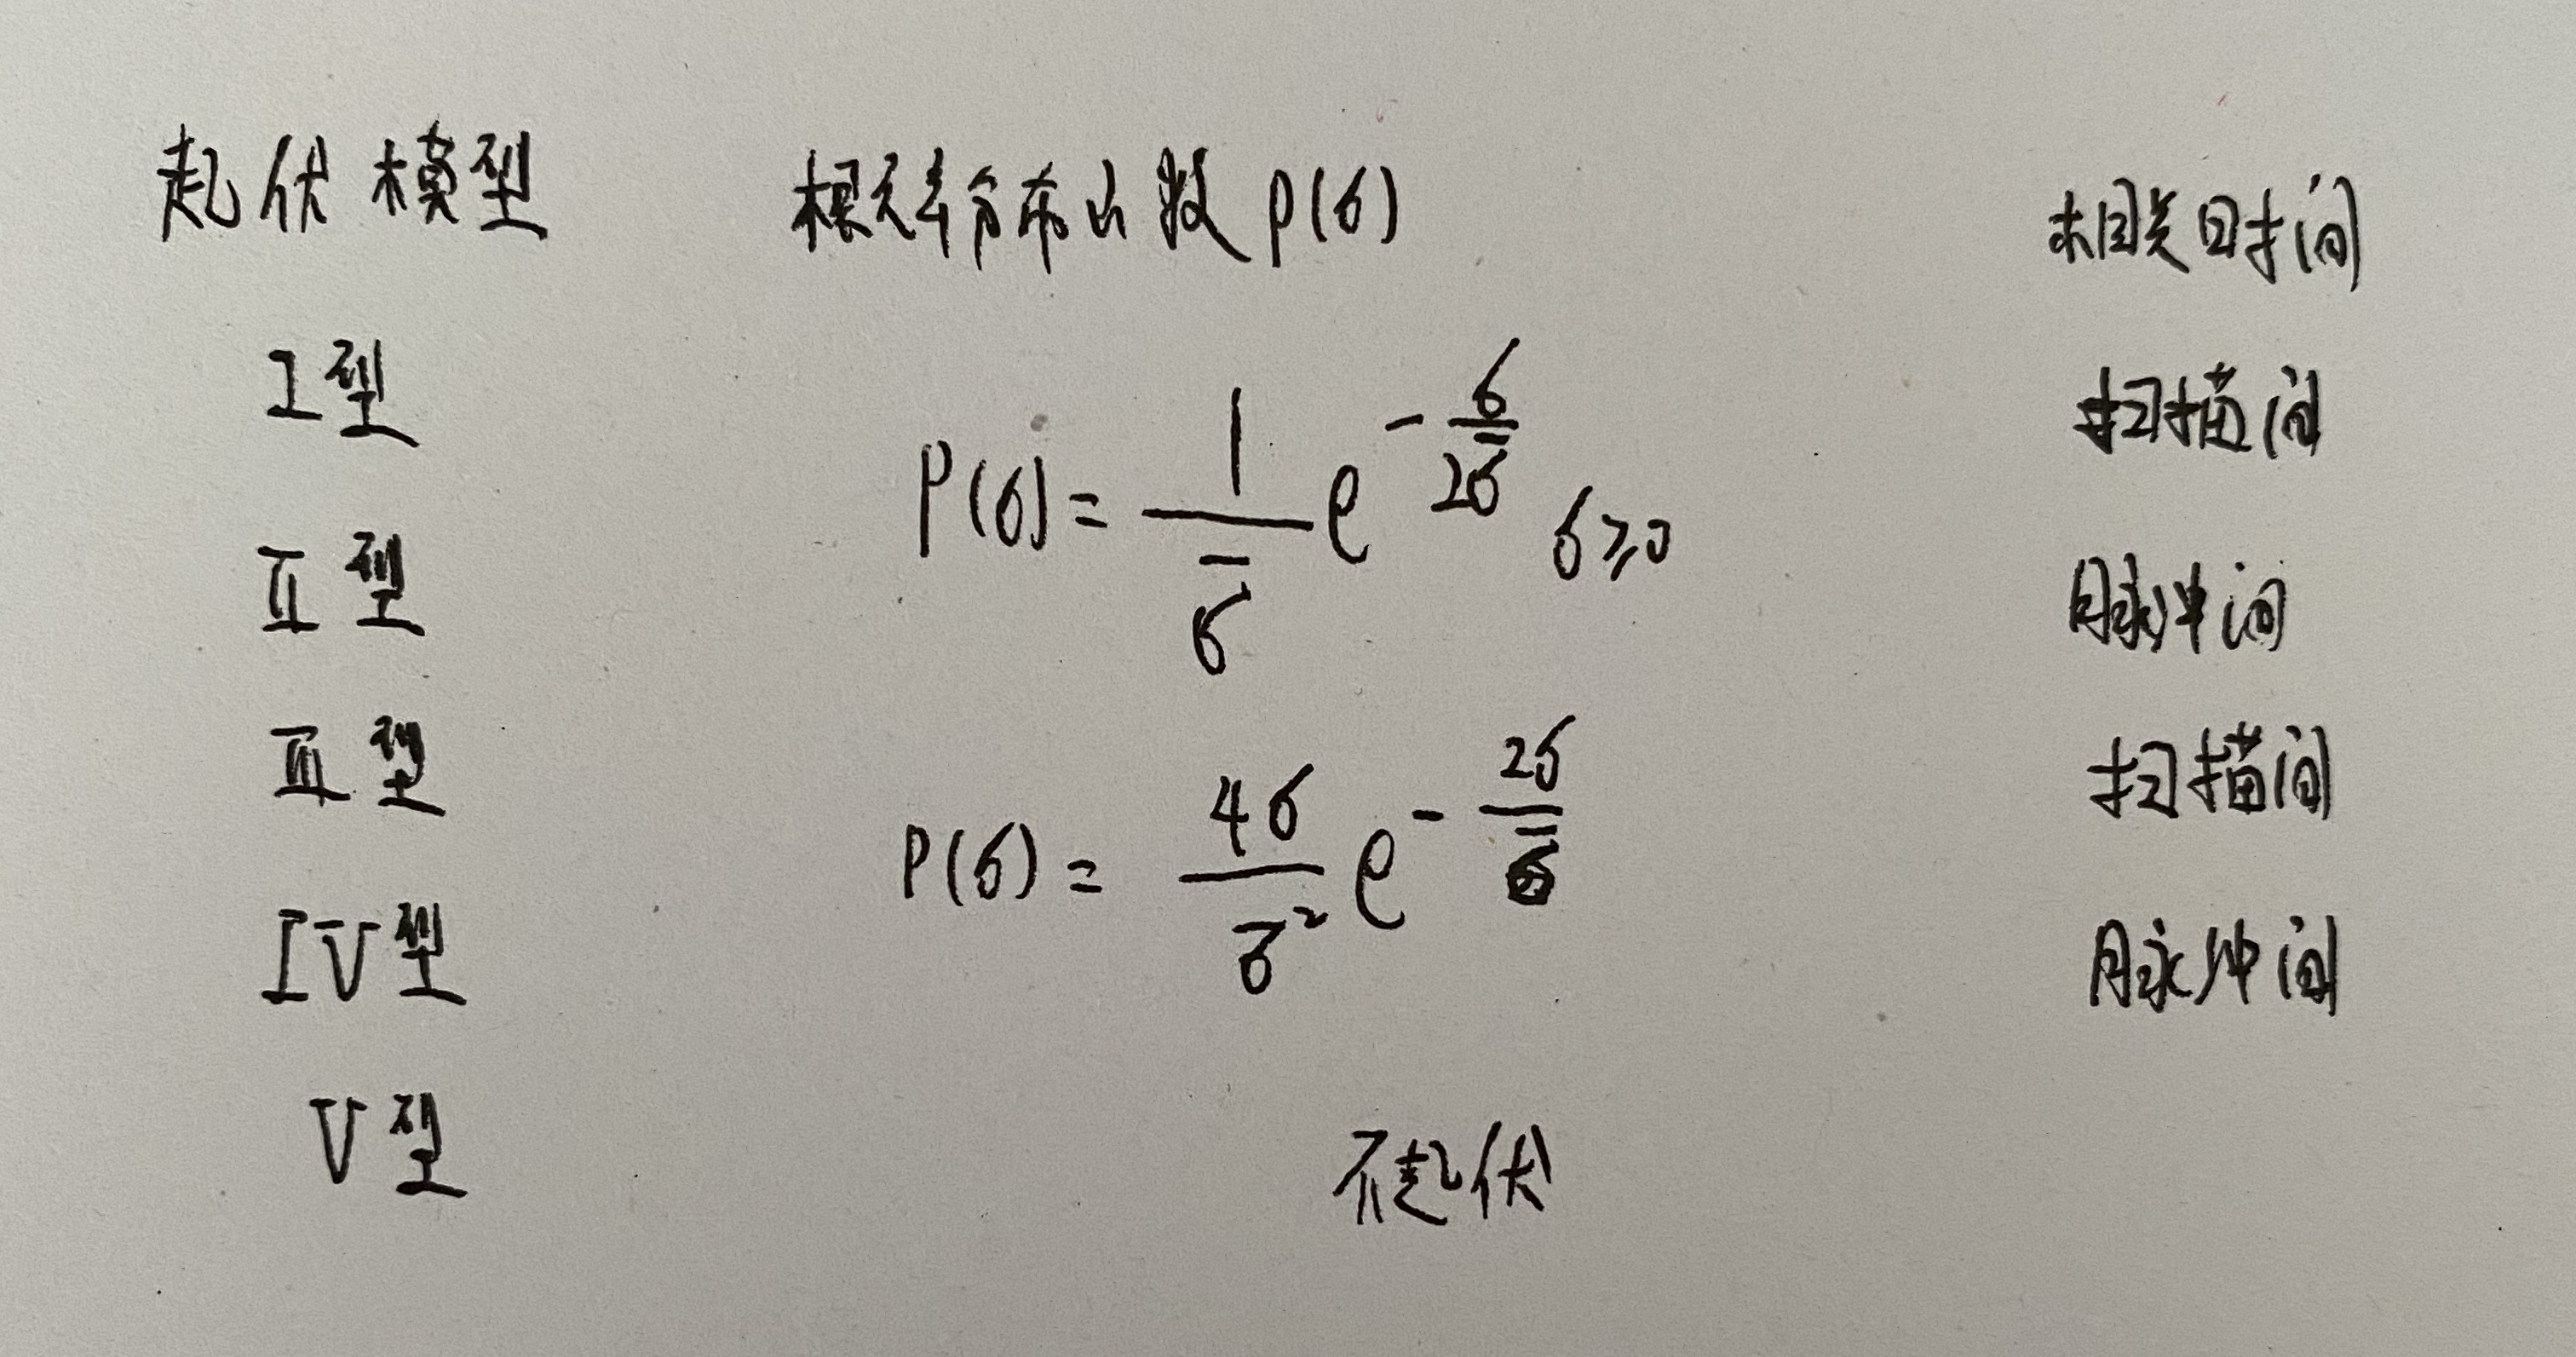 起伏模型 概率分布函数 P(σ) 相关时间
I型 扫描间
P(σ) = 1/σ̄ e^(-σ/2σ̄) σ≥0
II型 脉冲间
III型 扫描间
P(σ) = 4σ/σ̄² e^(-2σ/σ̄)
IV型 脉冲间
V型 不起伏